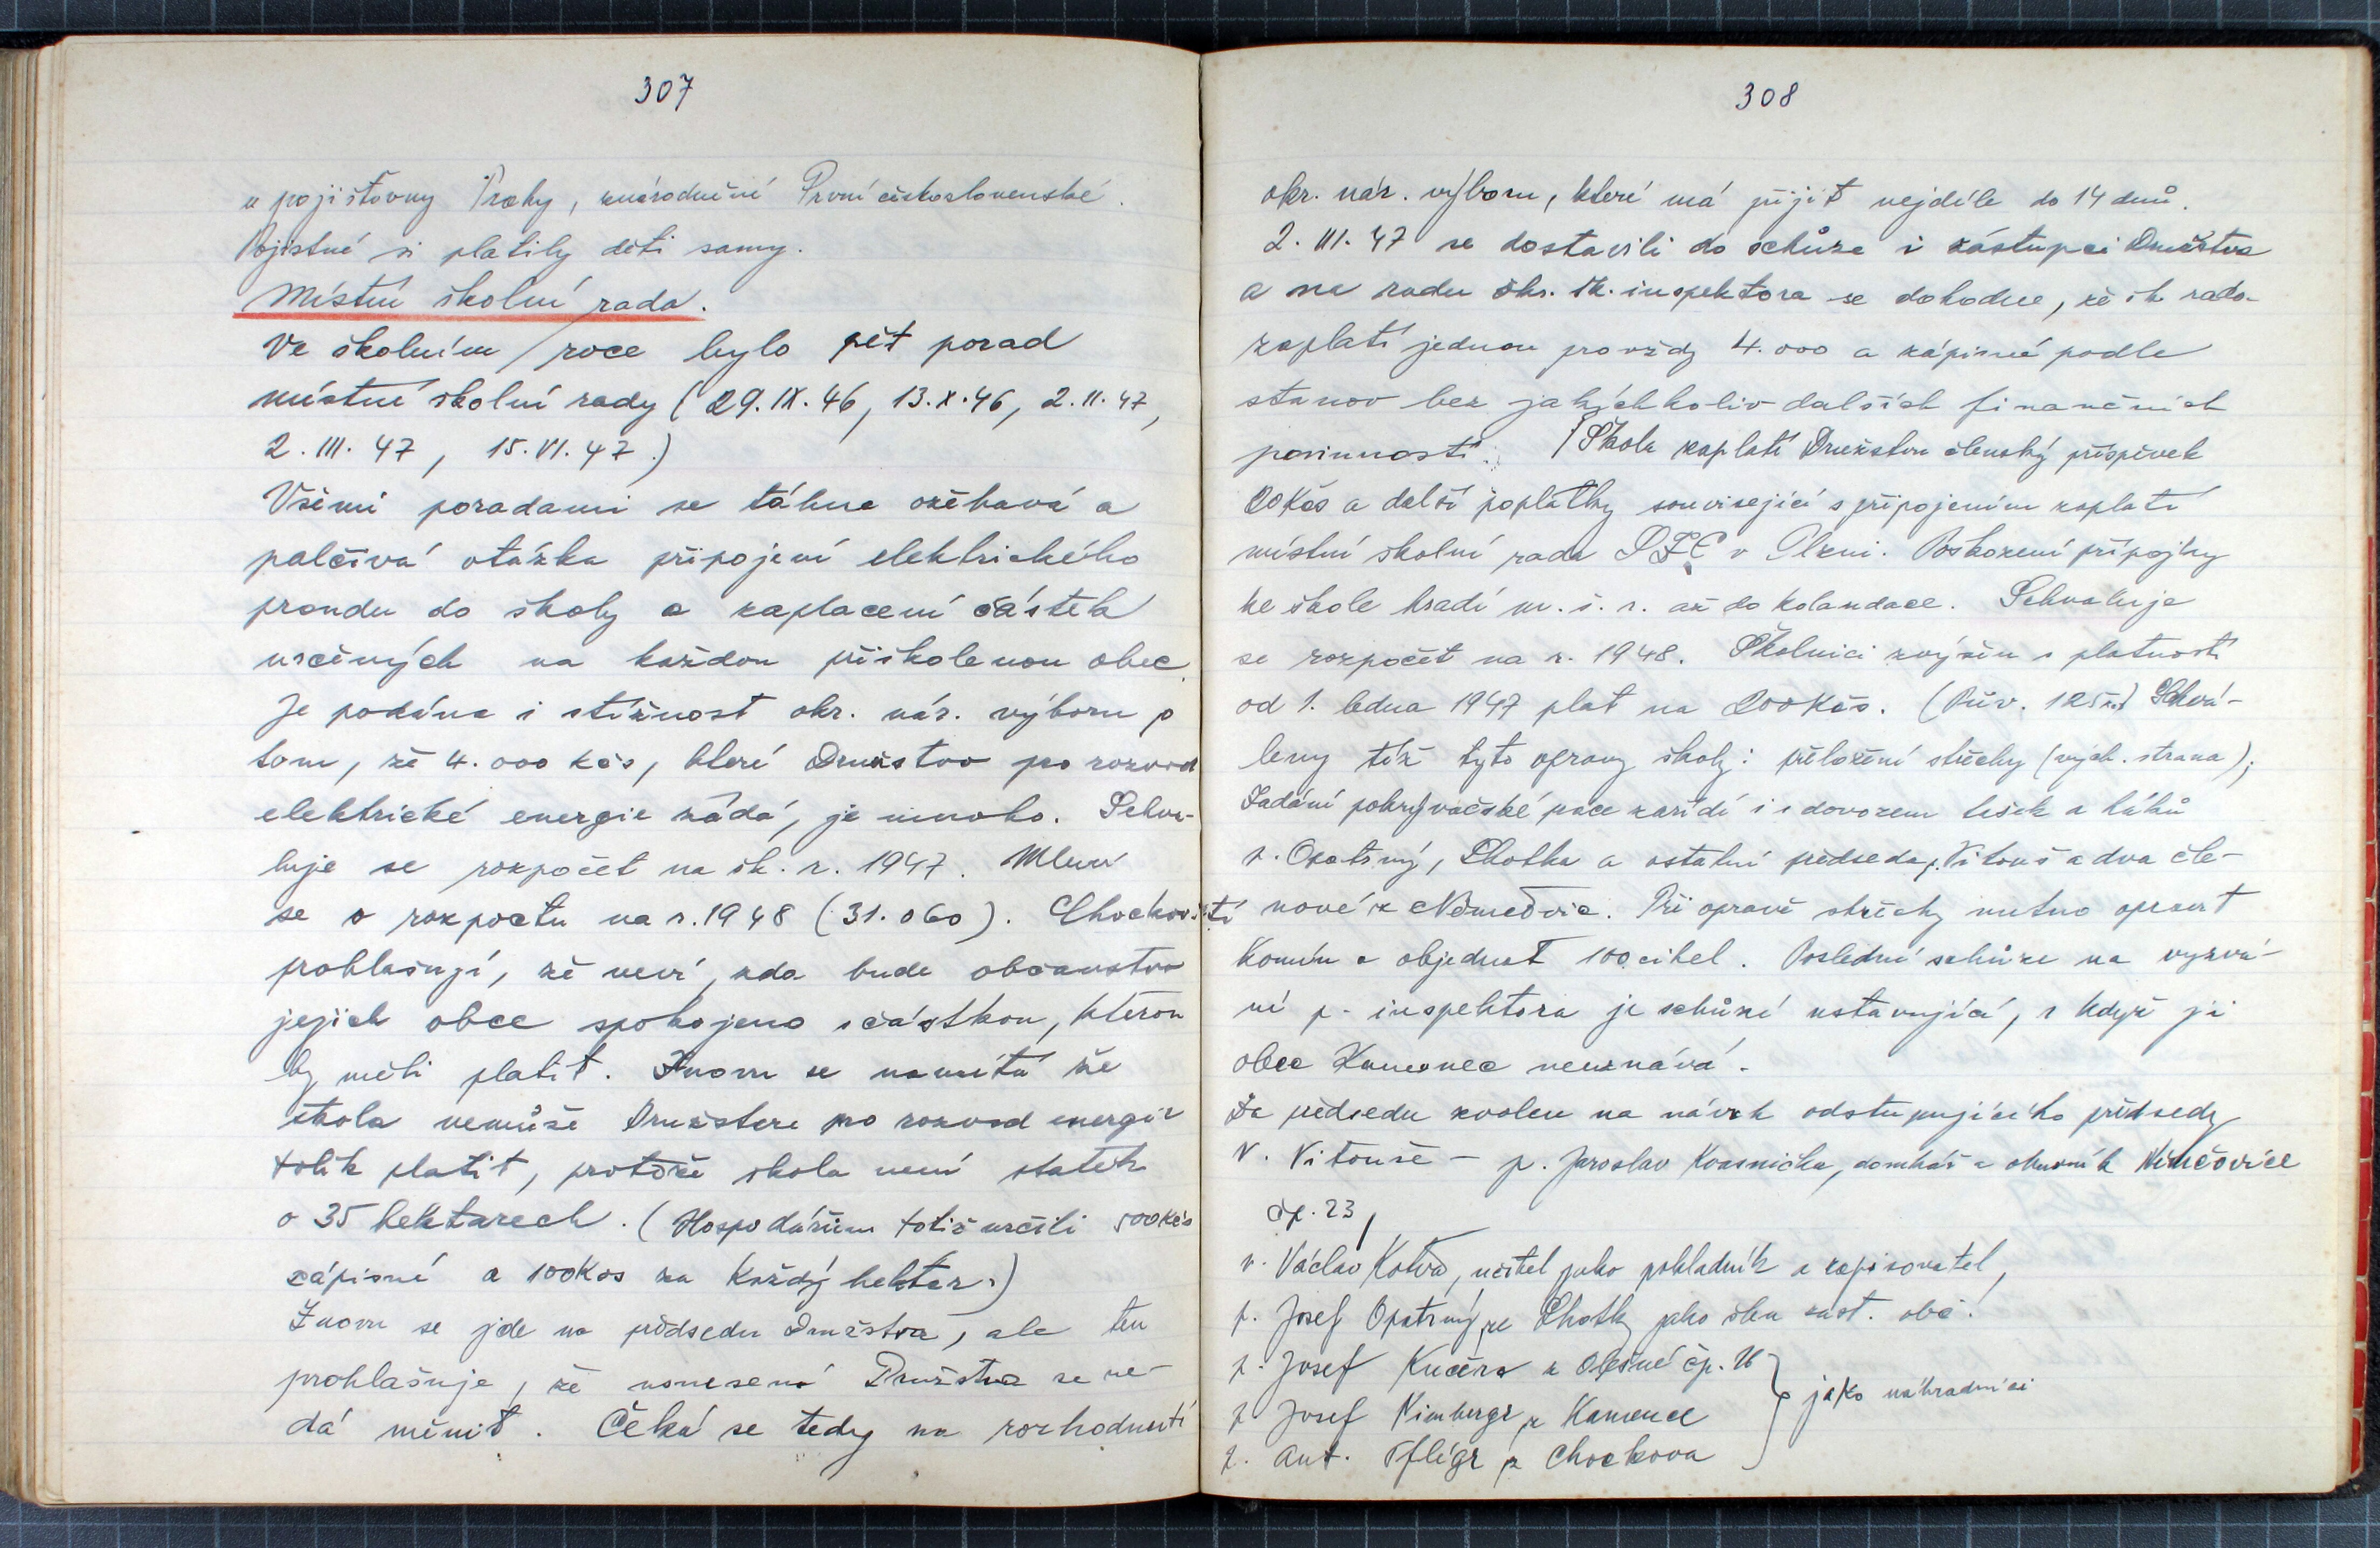 307
u pojišťovny Prahy, znárodněné První československé.
Pojistné si platily děti samy.
Místní školní rada.
Ve školním roce bylo pět porad
místní školní rady (29.IX.46, 13.X.46, 2.II.47,
2.III.47, 15.VI.47.)
Všemi poradami se táhne ožehavá a
palčivá otázka připojení elektrického
proudu do školy a zaplacení částek
určených na každou přiškolenou obec.
Je podána i stížnost okr. nár. výboru o
tom, že 4.000 Kčs, které Družstvo pro rozvod
elektrické energie žádá, je mnoho. Schva-
luje se rozpočet na šk. r. 1947. Mluví
se o rozpočtu na r. 1948 (31.060). Chockovští
prohlašují, že neví, zda bude občanstvo
jejich obce spokojeno s částkou, kterou
by měli platit. Znovu se namítá že
škola nemůže Družstvu pro rozvod energie
tolik platit, protože škola není statek
o 35 hektarech. (Hospodářům totiž určili 500 Kčs
zápisné a 100 Kčs za každý hektar.)
Znovu se jde na předsedu Družstva, ale ten
prohlašuje, že usnesení Družstva se ne-
dá měnit. Čeká se tedy na rozhodnutí
308
okr. nár. výboru, které má přijít nejdéle do 14 dnů.
2.III.47 se dostavili do schůze i zástupci Družstva
a na radu okr. šk. inspektora se dohodne, že šk rada
zaplatí jednou provždy 4.000 a zápisné podle
stanov bez jakýchkoliv dalších finančních
povinností. Škola zaplatí Družstvu členský příspěvek
200 Kčs a další poplatky související s připojením zaplatí
místní školní rada v Plzni. Poškození přípojky
ke škole hradí m. š. r. až do kolaudace. Schvaluje
se rozpočet na r. 1948. Školnici zvýšen s platností
od 1. ledna 1947 plat na 200 Kčs. (Pův. 125) Schvá-
leny též tyto opravy školy: přeložení střechy (vých. strana);
Zadání pokrývačské práce zařídí i s dovozem tašek a háků
p. Opatrný, Lhotka a ostatní předseda p. Vitouš a dva čle-
nové z Němčovic. Při opravě střechy nutno opravit
komín a objednat 100 cihel. Poslední schůze na vyzvá-
ní p. inspektora je schůzí ustavující, i když ji
obec Kamenec neuznává.
Za předsedu zvolen na návrh odstupujícího předsedy
V. Vitouše – p. Jaroslav Kvasnička, domkář a obuvník Němčovice
čp. 23,
p. Václav Kotva, učitel jako pokladník a zapisovatel,
p. Josef Opatrný ze Lhotky jako člen zast. obč.
p. Josef Kučera z Olešné čp. 16
p. Josef Nimbergr z Kamence } jako náhradníci
p. Ant. Pflégr z Chockova